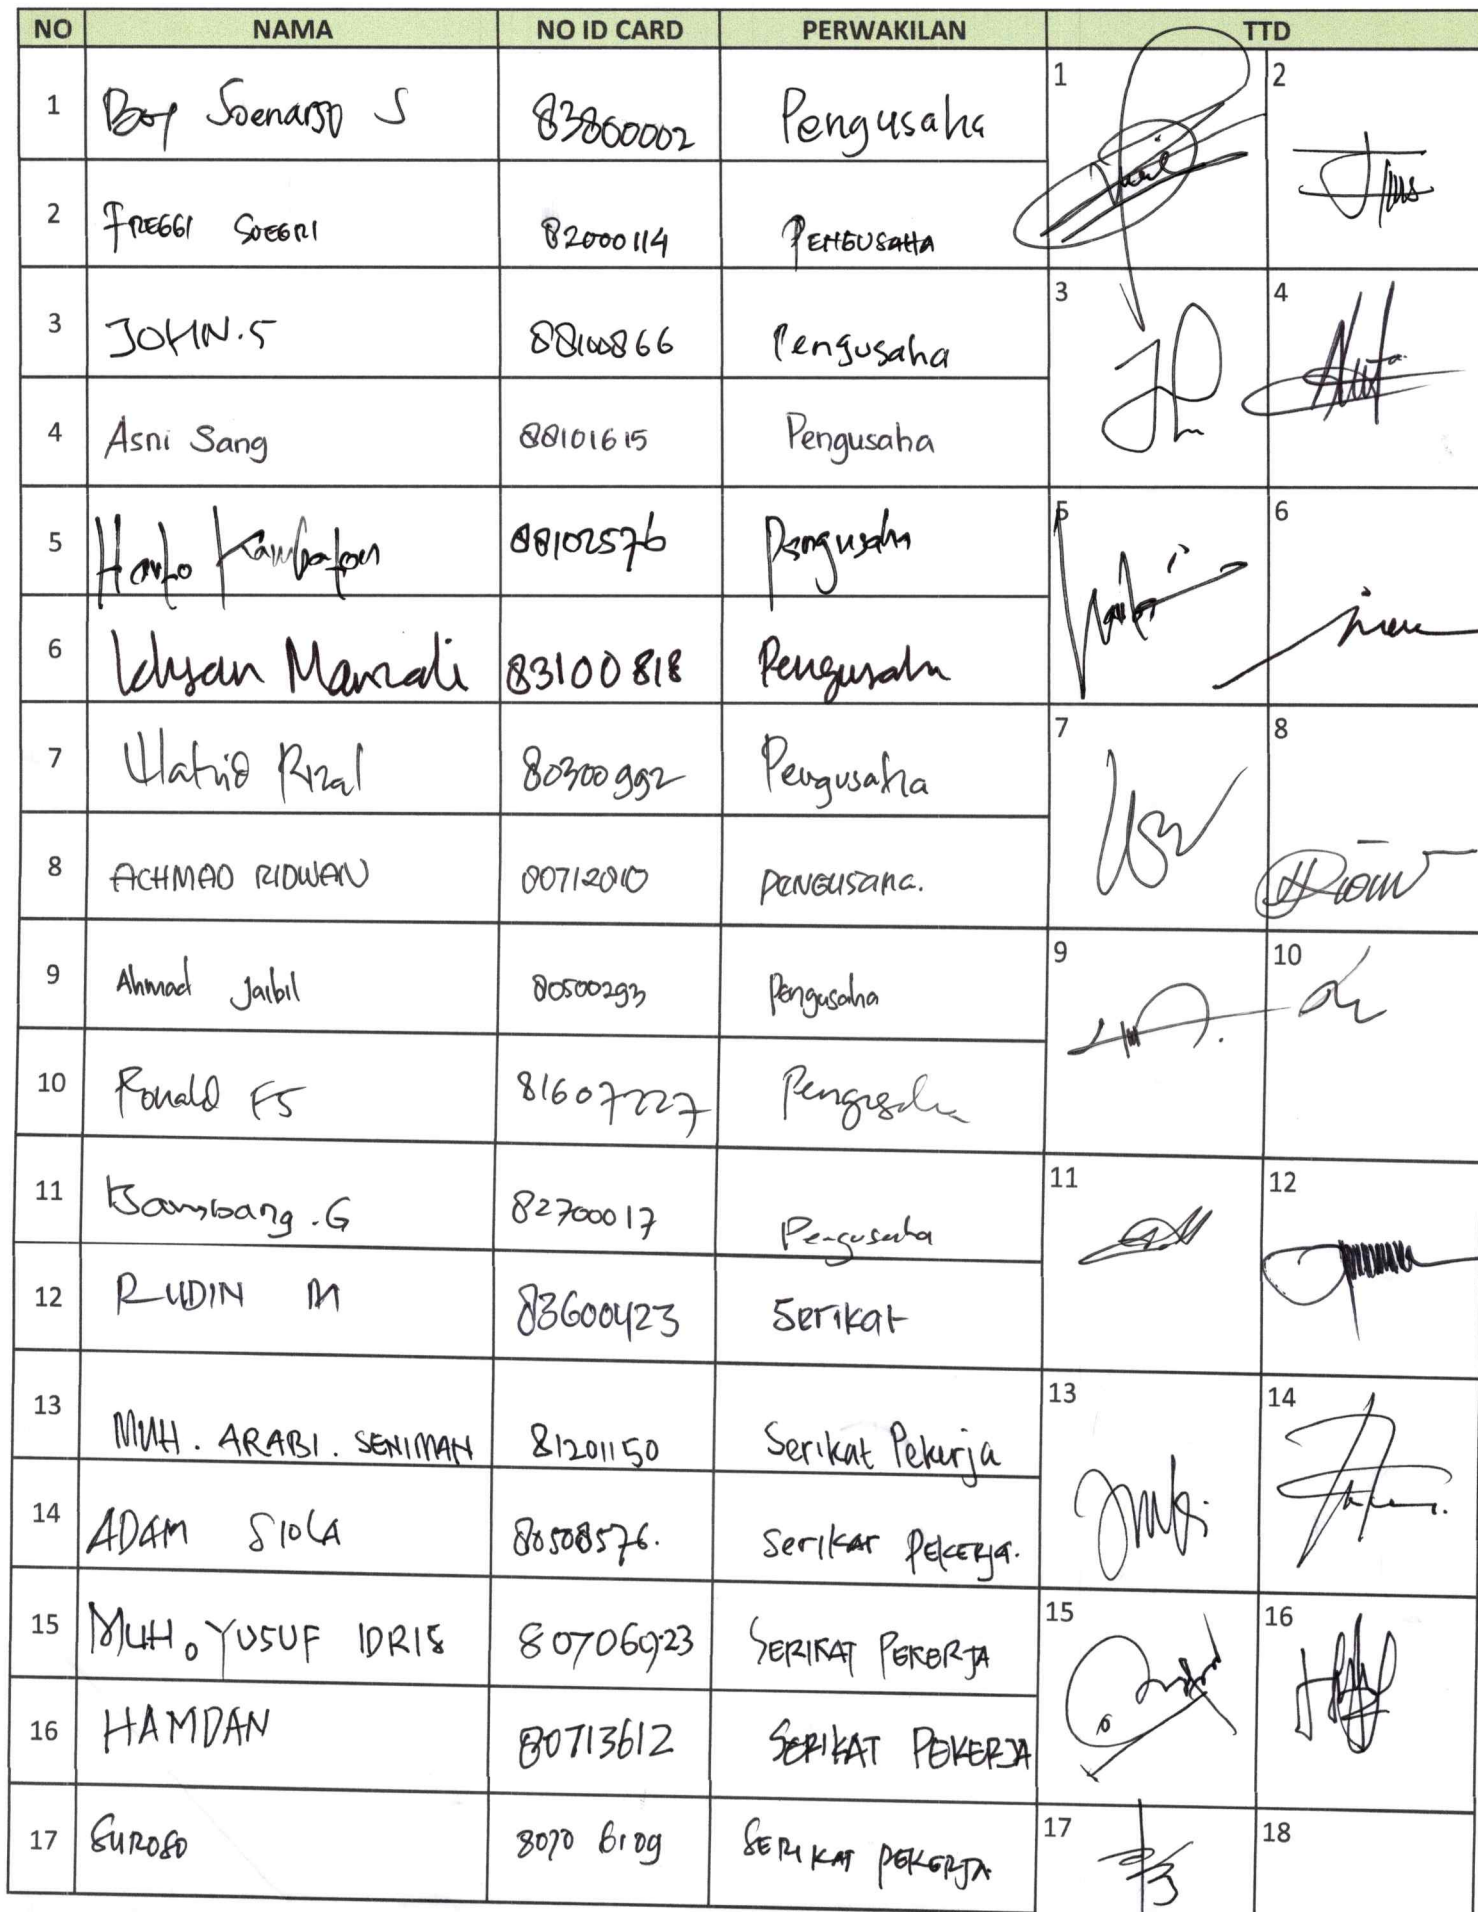 NO NAMA NO ID CARD PERWAKILAN TTD
1 Boy Soenarjo S 83800002 Pengusaha 1 2
2 FREGGI SOEGRI 82000114 PENGUSAHA
3 JOHN.S 88100866 Pengusaha 3 4
4 Asni Sang 88101615 Pengusaha
5 Harto 88102576 Pengusaha 5 6
6 83100818 Pengusaha
7 Wahid Rizal 80300992 Pengusaha 7 8
8 ACHMAD RIDWAN PENGUSAHA.
9 Ahmad Jaibil 80500293 Pengusaha 9 10
10 Ronald FS 81607227 Pengusaha
11 Bambang .G 82700017 Pengusaha 11 12
12 RUDIN M 83600423 Serikat
13 MUH. ARABI. SENIMAN 81201150 Serikat Pekerja 13 14
14 ADAM SIOLA 80508576. Serikat PEKERJA.
15 MUH. YUSUF IDRIS SERIKAT PEKERJA 15 16
16 HAMDAN 80713612 SERIKAT PEKERJA
17 SUROSO SERIKAT PEKERJA 17 18